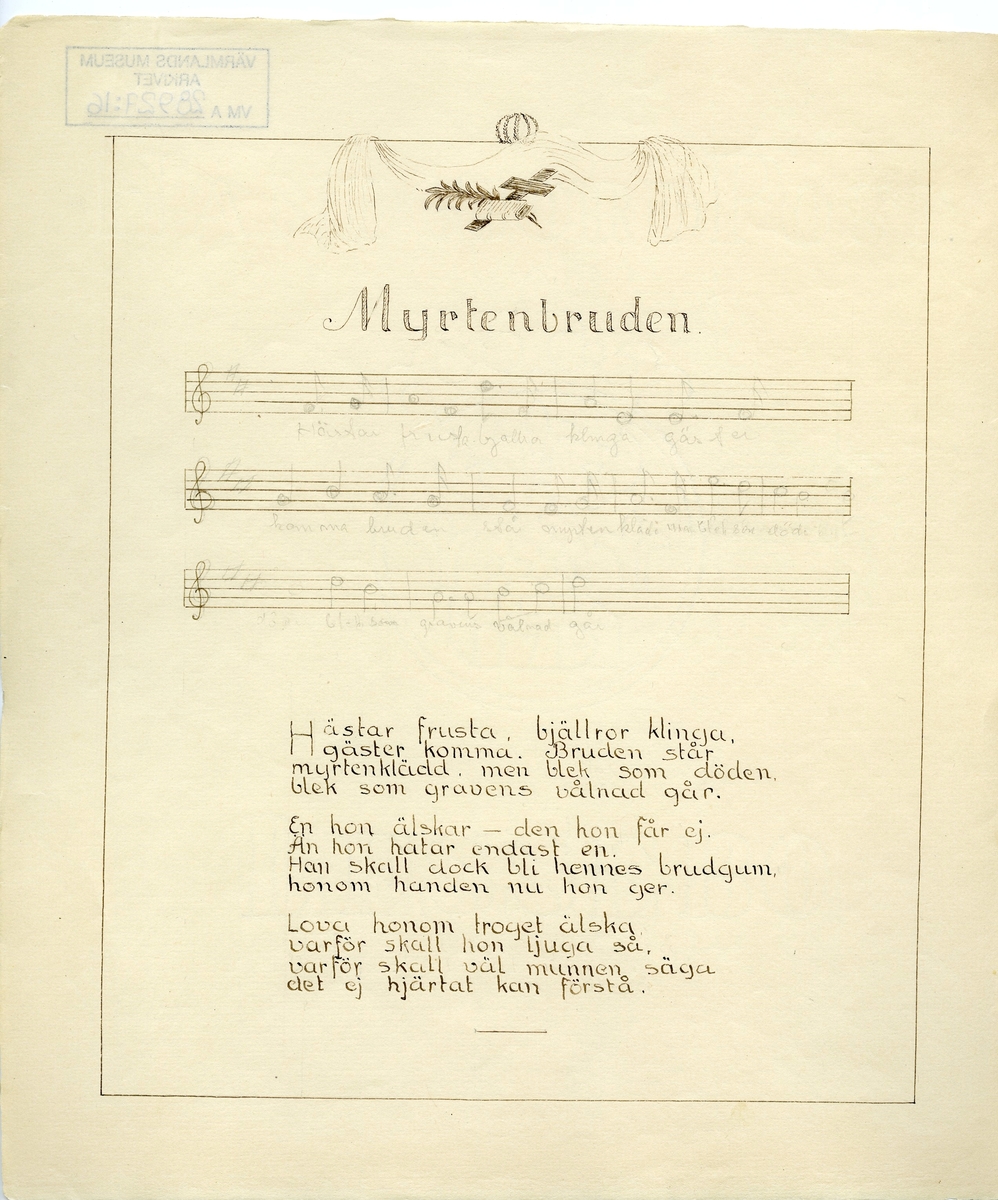 VÄRMLANDS MUSEUM
ARKIVET
VM A 28921:16
Myrtenbruden.
Hästar frusta bjällror klinga gäster
komma bruden står myrtenklädd men blek som döden
blek som gravens vålnad går
Hästar frusta, bjällror klinga,
gäster komma. Bruden står
myrtenklädd, men blek som döden,
blek som gravens vålnad går.
En hon älskar — den hon får ej.
Än hon hatar endast en.
Han skall dock bli hennes brudgum,
honom handen nu hon ger.
Lova honom troget älska,
varför skall hon ljuga så,
varför skall väl munnen säga
det ej hjärtat kan förstå.